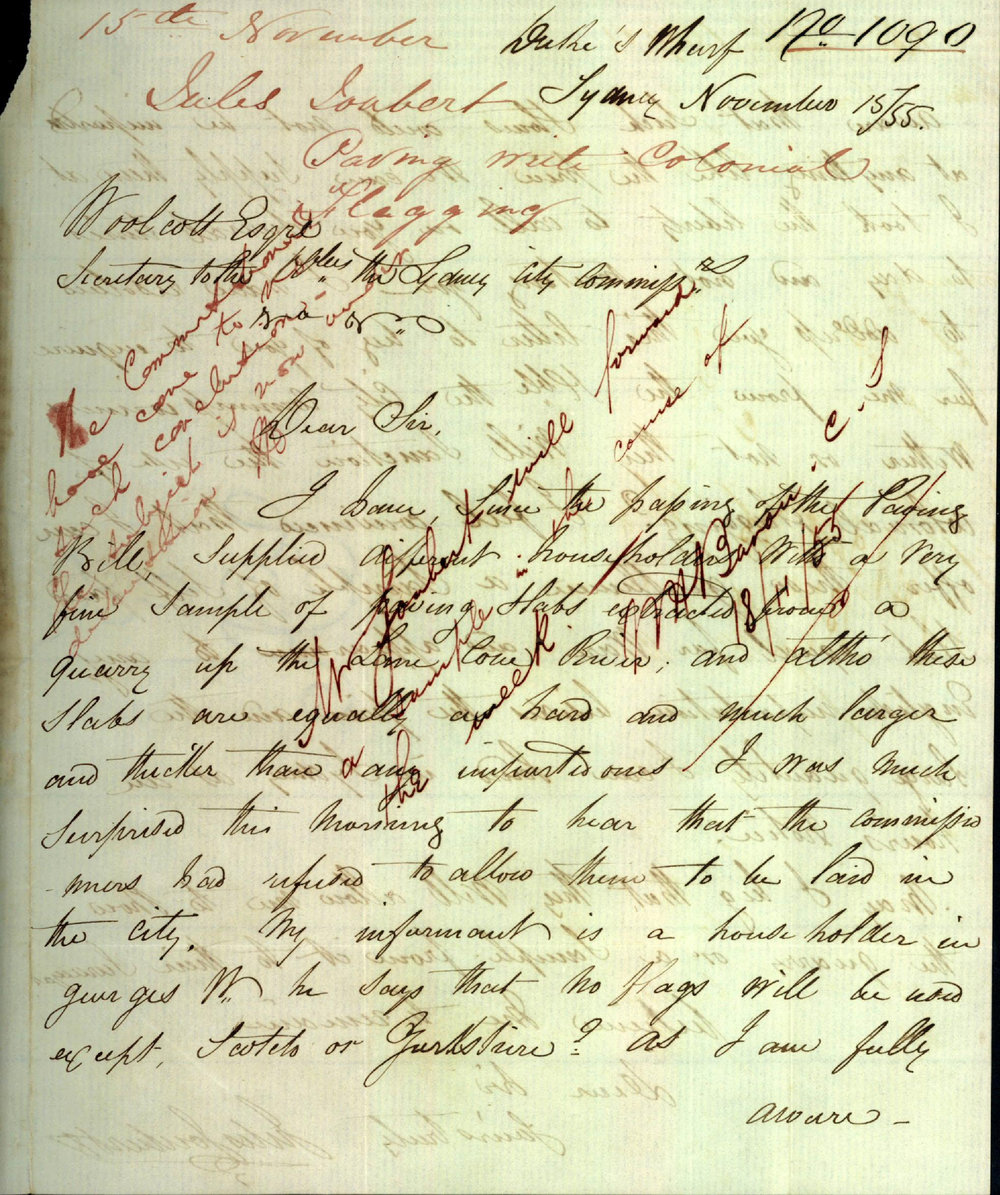 15th November
Duke's Wharf No 1090
Jules Joubert Sydney November 15/55.
Paving with Colonial
Flagging
Woolcott Esqre
Secretary to the the Sydney city Commissrs
Dear Sir,
I have, Since the passing of the Paving
Bill, Supplied different householders with a very
fine Sample of paving Slabs extracted from a
quarry up the Lane Cove River; and altho' these
Slabs are equally as hard and much larger
and thicker than any imported ones I was much
Surprised this Morning to hear that the commissio
-nners had refused to allow them to be laid in
the city. My informant is a house holder in
georges St. he Says that no flags will be used
except, Scotch or Yorkshire? As I am fully
aware -
The Commissioners
have come to no
such conclusion
The subject is now under
consideration
Mr Joubert will forward
a sample in the course of
the week.
18/11/55